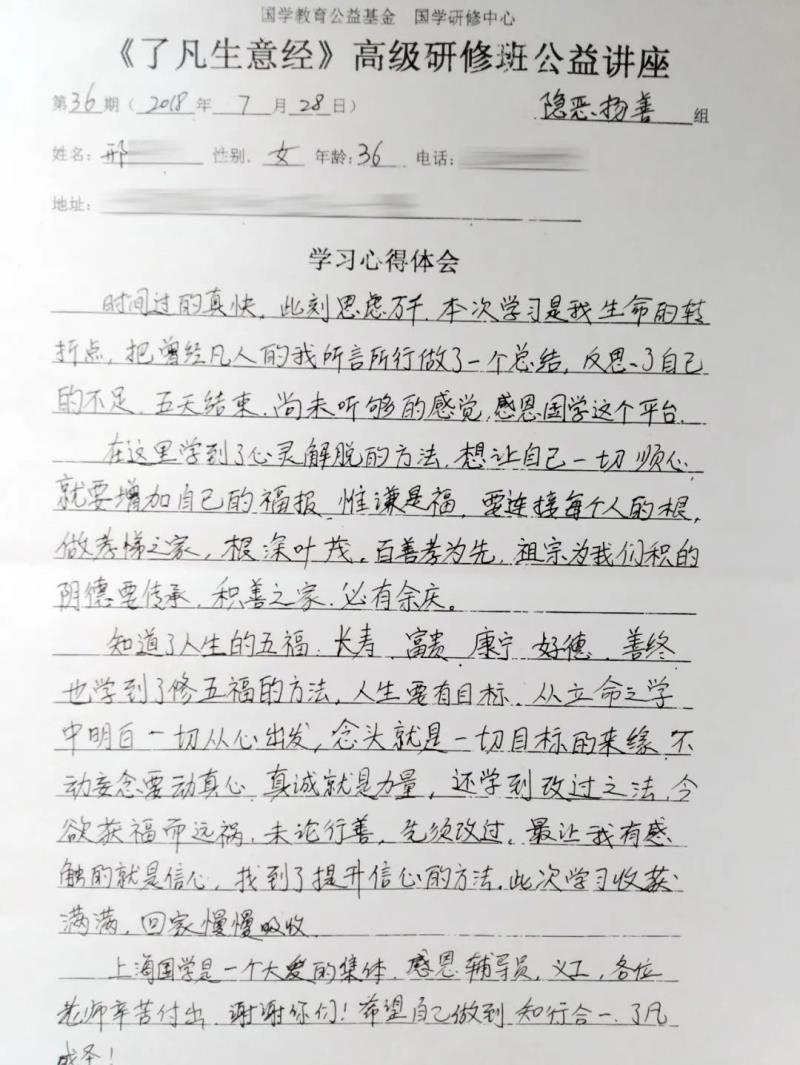 国学教育公益基金 国学研修中心
《了凡生意经》高级研修班公益讲座
第36期（2018年7月28日） 隐恶扬善组
姓名：邢 性别.女 年龄:36 电话:
地址:
学习心得体会
时间过的真快，此刻思虑万千.本次学习是我生命的转
折点，把曾经凡人的我所言所行做了一个总结，反思了自己
的不足.五天结束.尚未听够的感觉，感恩国学这个平台.
在这里学到了心灵解脱的方法.想让自己一切顺心
就要增加自己的福报.惟谦是福，要连接每个人的根，
做孝悌之家，根深叶茂。百善孝为先.祖宗为我们积的
阴德要传承.积善之家.必有余庆。
知道了人生的五福.长寿.富贵 康宁 好德.善终
也学到了修五福的方法，人生要有目标.从立命之学
中明白一切从心出发，念头就是一切目标的来缘.不
动妄念要动真心.真诚就是力量，还学到改过之法.今
欲获福而远祸.未论行善，先须改过。最让我有感
触的就是信心，找到了提升信心的方法.此次学习收获
满满，回家慢慢吸收.
上海国学是一个大爱的集体.感恩辅导员，义工，各位
老师辛苦付出.谢谢你们！希望自己做到知行合一.了凡
成圣！